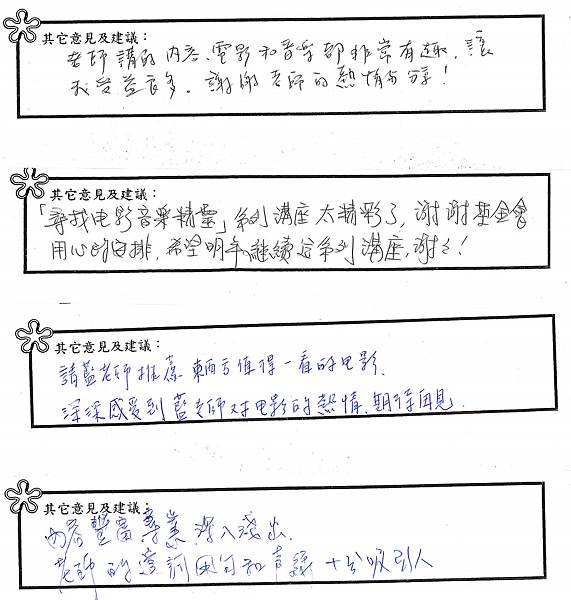 其它意見及建議：
老師講的內容、電影和音樂都非常有趣，讓
我受益良多。謝謝老師的熱情分享！
其它意見及建議：
「尋找电影音樂精靈」系列講座太精彩了，谢谢基金會
用心的安排，希望明年継續这系列講座，谢々！
其它意見及建議：
請藍老師推薦 值得一看的电影.
深深感受到藍老师对电影的熱情，期待再見.
其它意見及建議：
內容豐富專業 深入淺出.
老師的遣詞用句和声譜十分吸引人